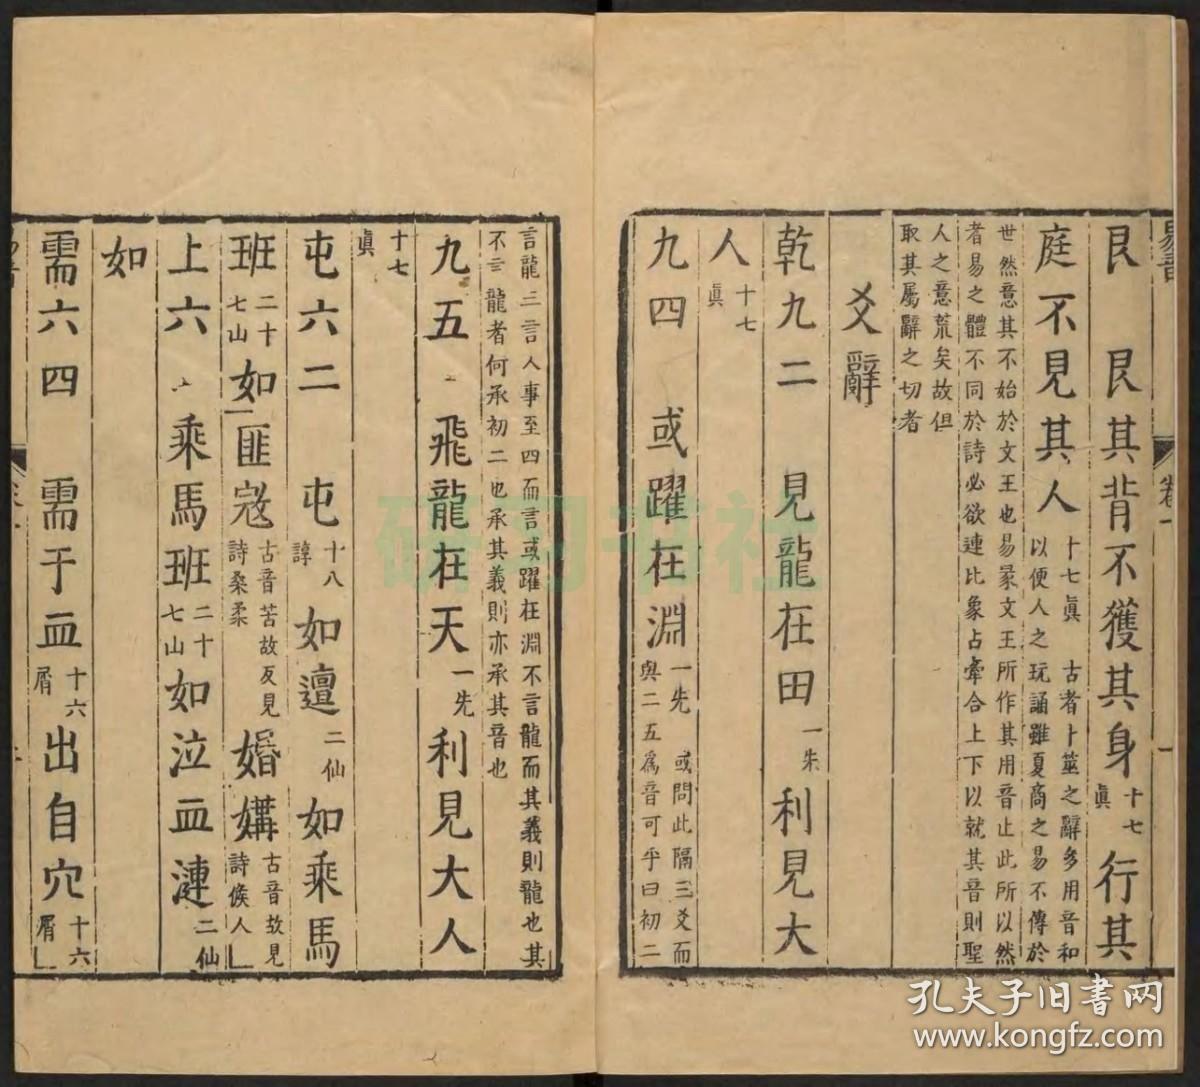 易音
卷一
一
艮　艮其背不獲其身十七眞行其
庭不見其人十七眞　古者卜筮之辭多用音和以便人之玩誦雖夏商之易不傳於
世然意其不始於文王也易彖文王所作其用音止此所以然者易之體不同於詩必欲連比象占牽合上下以就其音則聖
人之意荒矣故但取其屬辭之切者
爻辭
乾九二　見龍在田一先利見大
人十七眞
九四　或躍在淵一先　或問此隔三爻而與二五爲音可乎曰初二
言龍三言人事至四而言或躍在淵不言龍而其義則龍也其不云龍者何承初二也承其義則亦承其音也
九五　飛龍在天一先利見大人
十七眞
屯六二　屯十八諄如邅二仙如乘馬
班二十七山如匪寇古音苦故反見詩桑柔婚媾古音故見詩候人
上六　乘馬班二十七山如泣血漣二仙
如
需六四　需于血十六屑出自穴十六屑
研习书社
孔夫子旧书网
www.kongfz.com